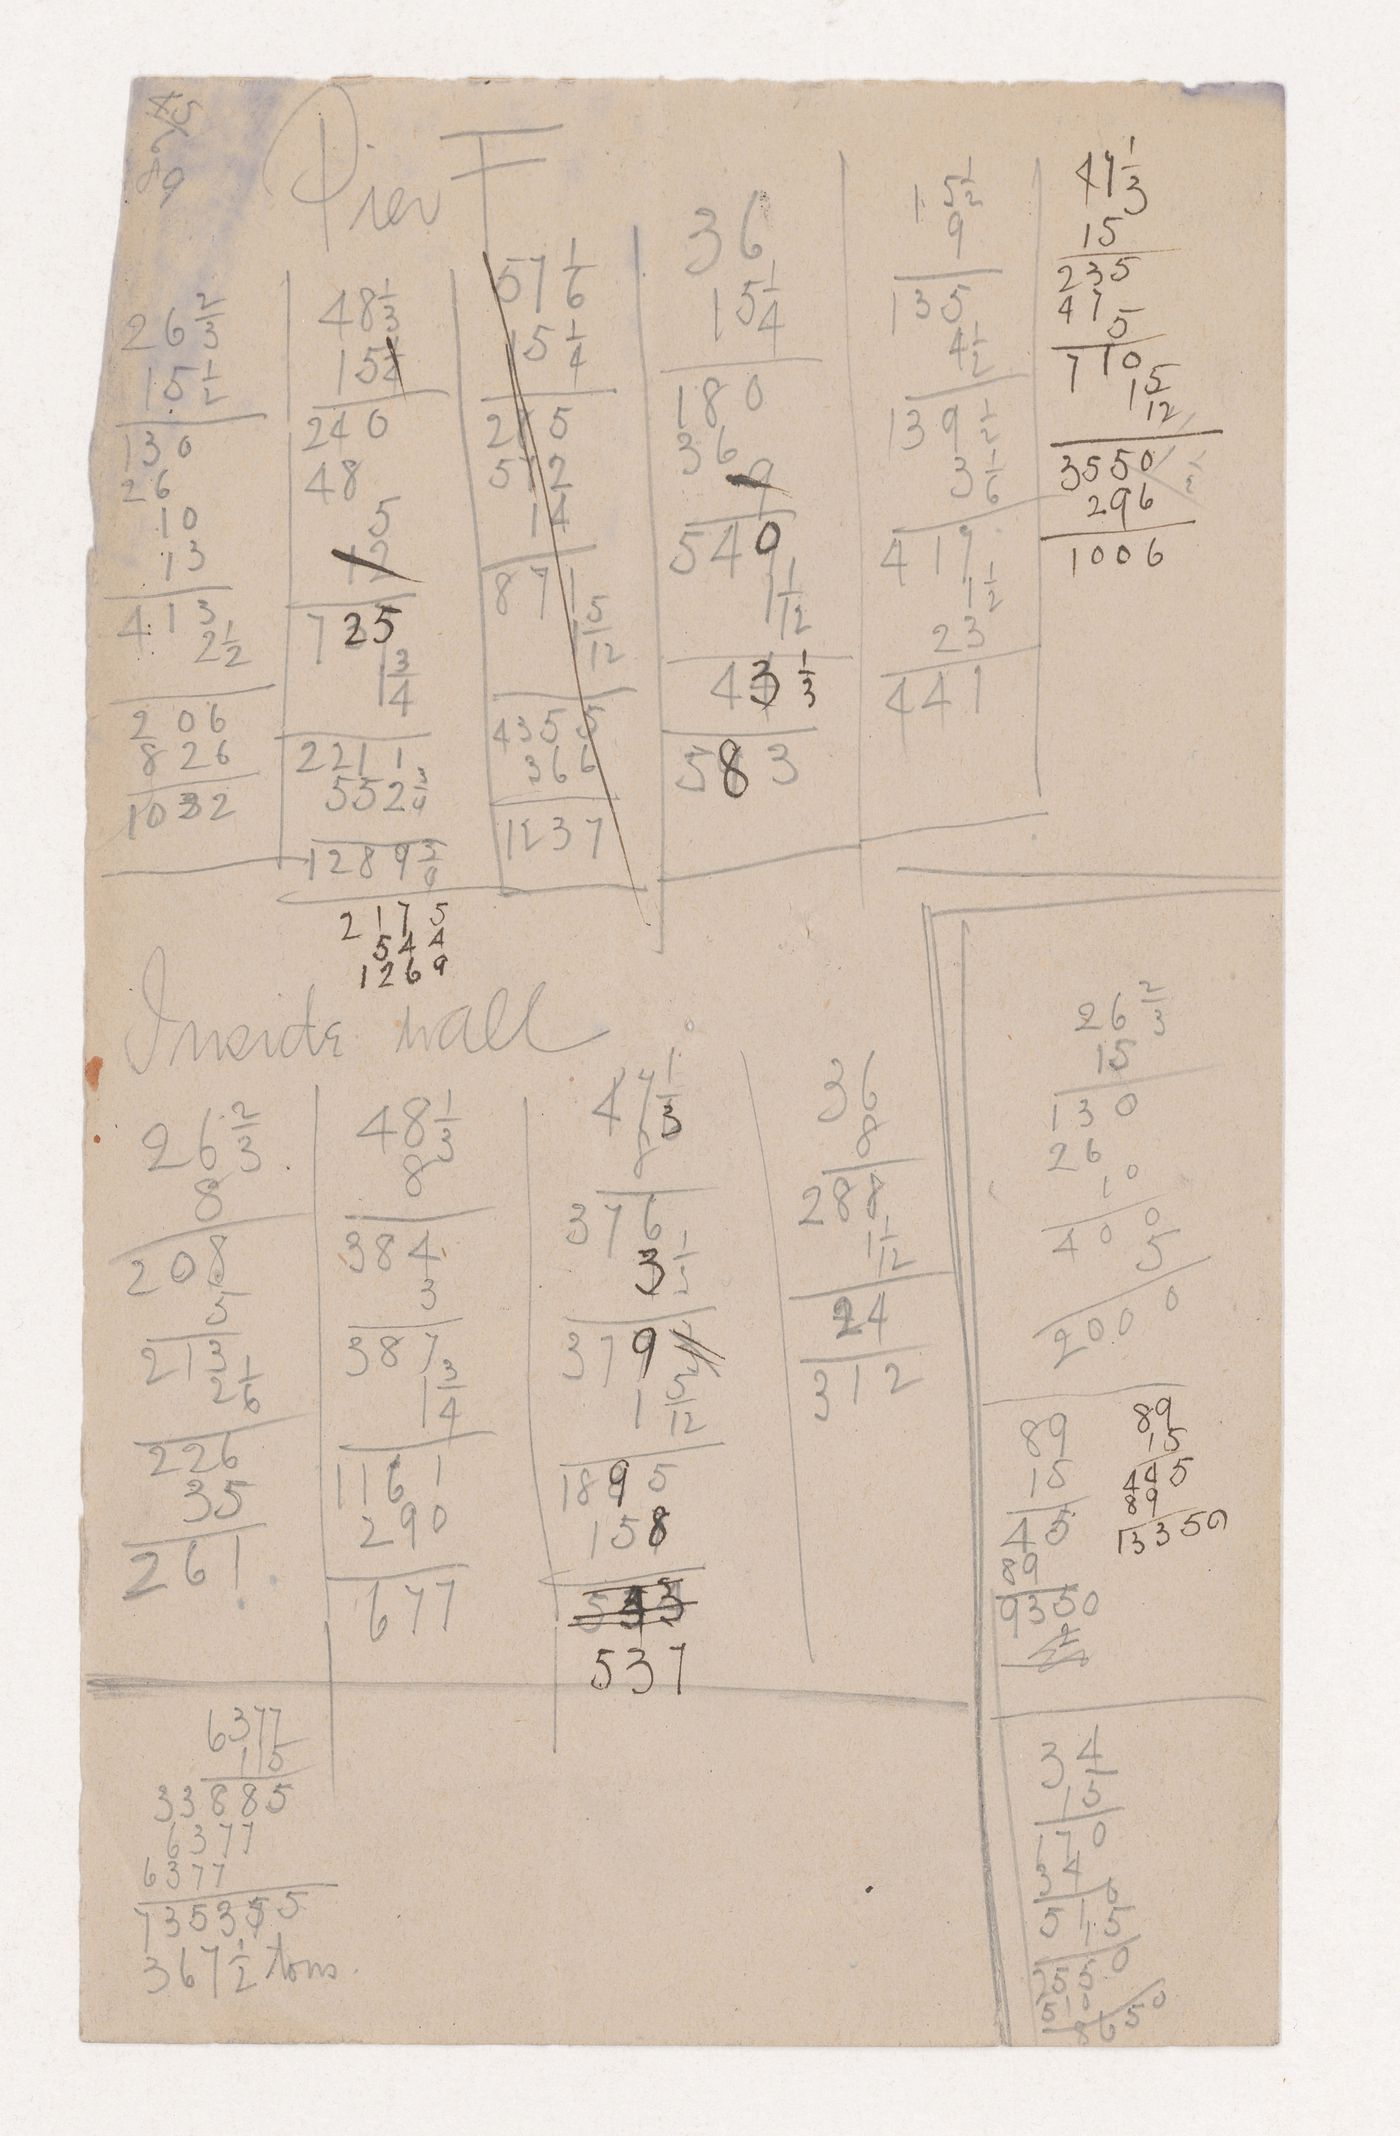 45
89
Pier F
26 2/3
15 1/2
130
26
10
13
413
2 1/2
206
826
1032
48 1/3
15
240
48
5
12
725
1 3/4
2211
552 3/4
1289 3/4
2175
544
1269
57 1/6
15 1/4
285
572
14
871
1 5/12
4355
366
1237
36
15 1/4
180
36
9
540
1 1/12
43 1/3
583
15 1/2
9
135
4 1/2
139 1/2
3 1/6
417
1 1/2
23
441
47 1/3
15
235
47
5
710
1 5/12
3550
296
1006
Inside wall
26 2/3
8
208
5
213
2 1/6
226
35
261
48 1/3
8
384
3
387
1 3/4
1161
290
677
47 1/3
8
376
3 1/2
379
1 5/12
1895
158
537
36
8
288
1 1/12
24
312
26 2/3
15
130
26
10
400
5
2000
89
15
45
89
9350
89
15
445
89
13350
34
15
170
34
510
15
2550
510
7650
6377
115
33885
6377
6377
735355
367 1/2 tons.